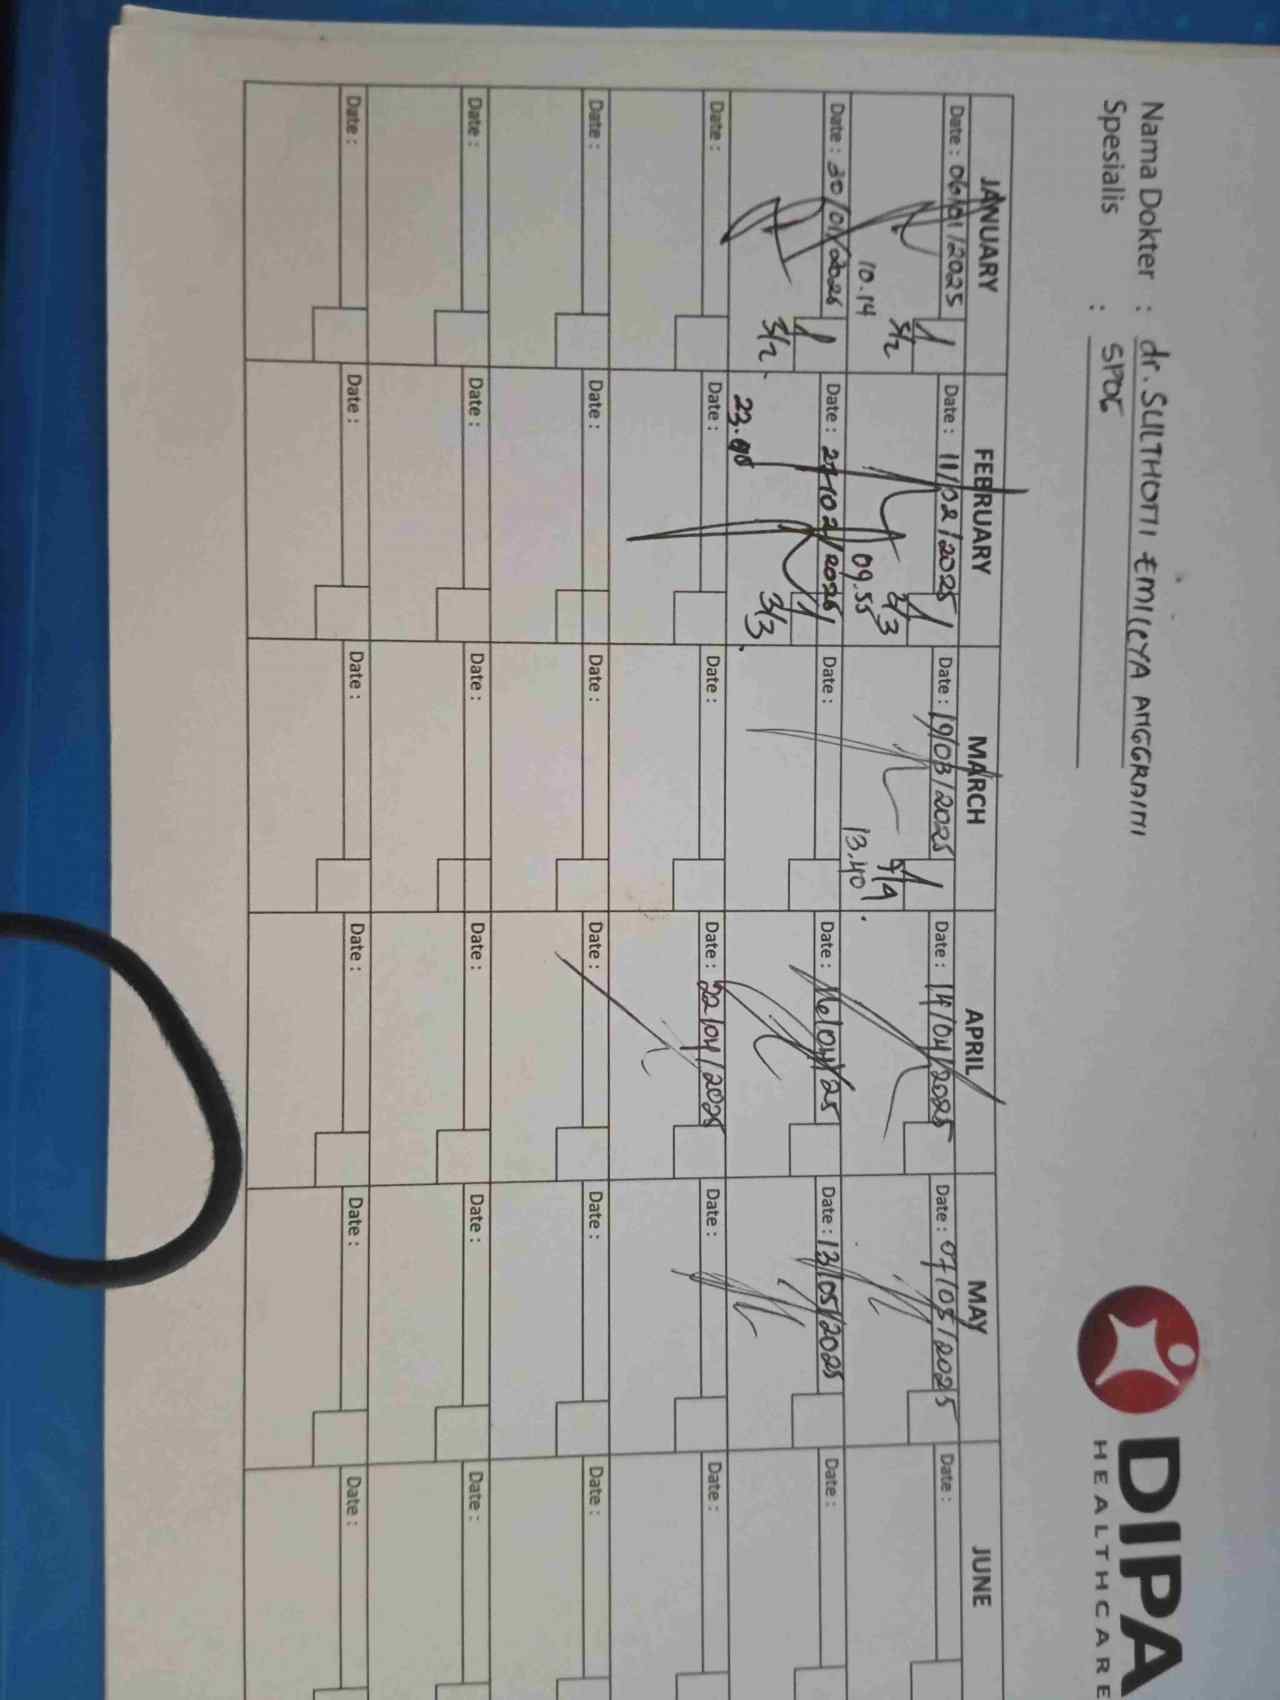 Nama Dokter : dr. SULTHONI EMILEYA ANGGRAINI
Spesialis : SPOG
DIPA
HEALTHCARE
JANUARY FEBRUARY MARCH APRIL MAY JUNE
Date : 06/01/2025 Date : 11/02/2025 Date : 19/03/2025 Date : 14/04/2025 Date : 07/05/2025 Date :
3/2 3/3 9/4
10.14 09.55 13.40
Date : 30/01/2025 Date : 27/02/2025 Date : Date : 16/04/25 Date : 13/05/2025 Date :
3/2 3/3
23.
Date : Date : Date : Date : 22/04/2025 Date : Date :
Date : Date : Date : Date : Date : Date :
Date : Date : Date : Date : Date : Date :
Date : Date : Date : Date : Date : Date :